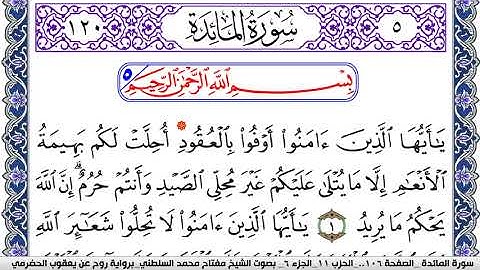 ٥ سُورَةُ المَائِدَةِ ١٢٠
بِسْمِ اللَّهِ الرَّحْمَٰنِ الرَّحِيمِ ٥
يَـٰٓأَيُّهَا الَّذِينَ ءَامَنُوا أَوْفُوا بِالْعُقُودِ أُحِلَّتْ لَكُم بَهِيمَةُ
الْأَنْعَـٰمِ إِلَّا مَا يُتْلَىٰ عَلَيْكُمْ غَيْرَ مُحِلِّي الصَّيْدِ وَأَنتُمْ حُرُمٌ إِنَّ اللَّهَ
يَحْكُمُ مَا يُرِيدُ ١ يَـٰٓأَيُّهَا الَّذِينَ ءَامَنُوا لَا تُحِلُّوا شَعَـٰٓئِرَ اللَّهِ
سورة المائدة _الصفحة ١٠٦_ الحزب ١١_ الجزء ٦_ بصوت الشيخ مفتاح محمد السلطني_برواية روح عن يعقوب الحضرمي